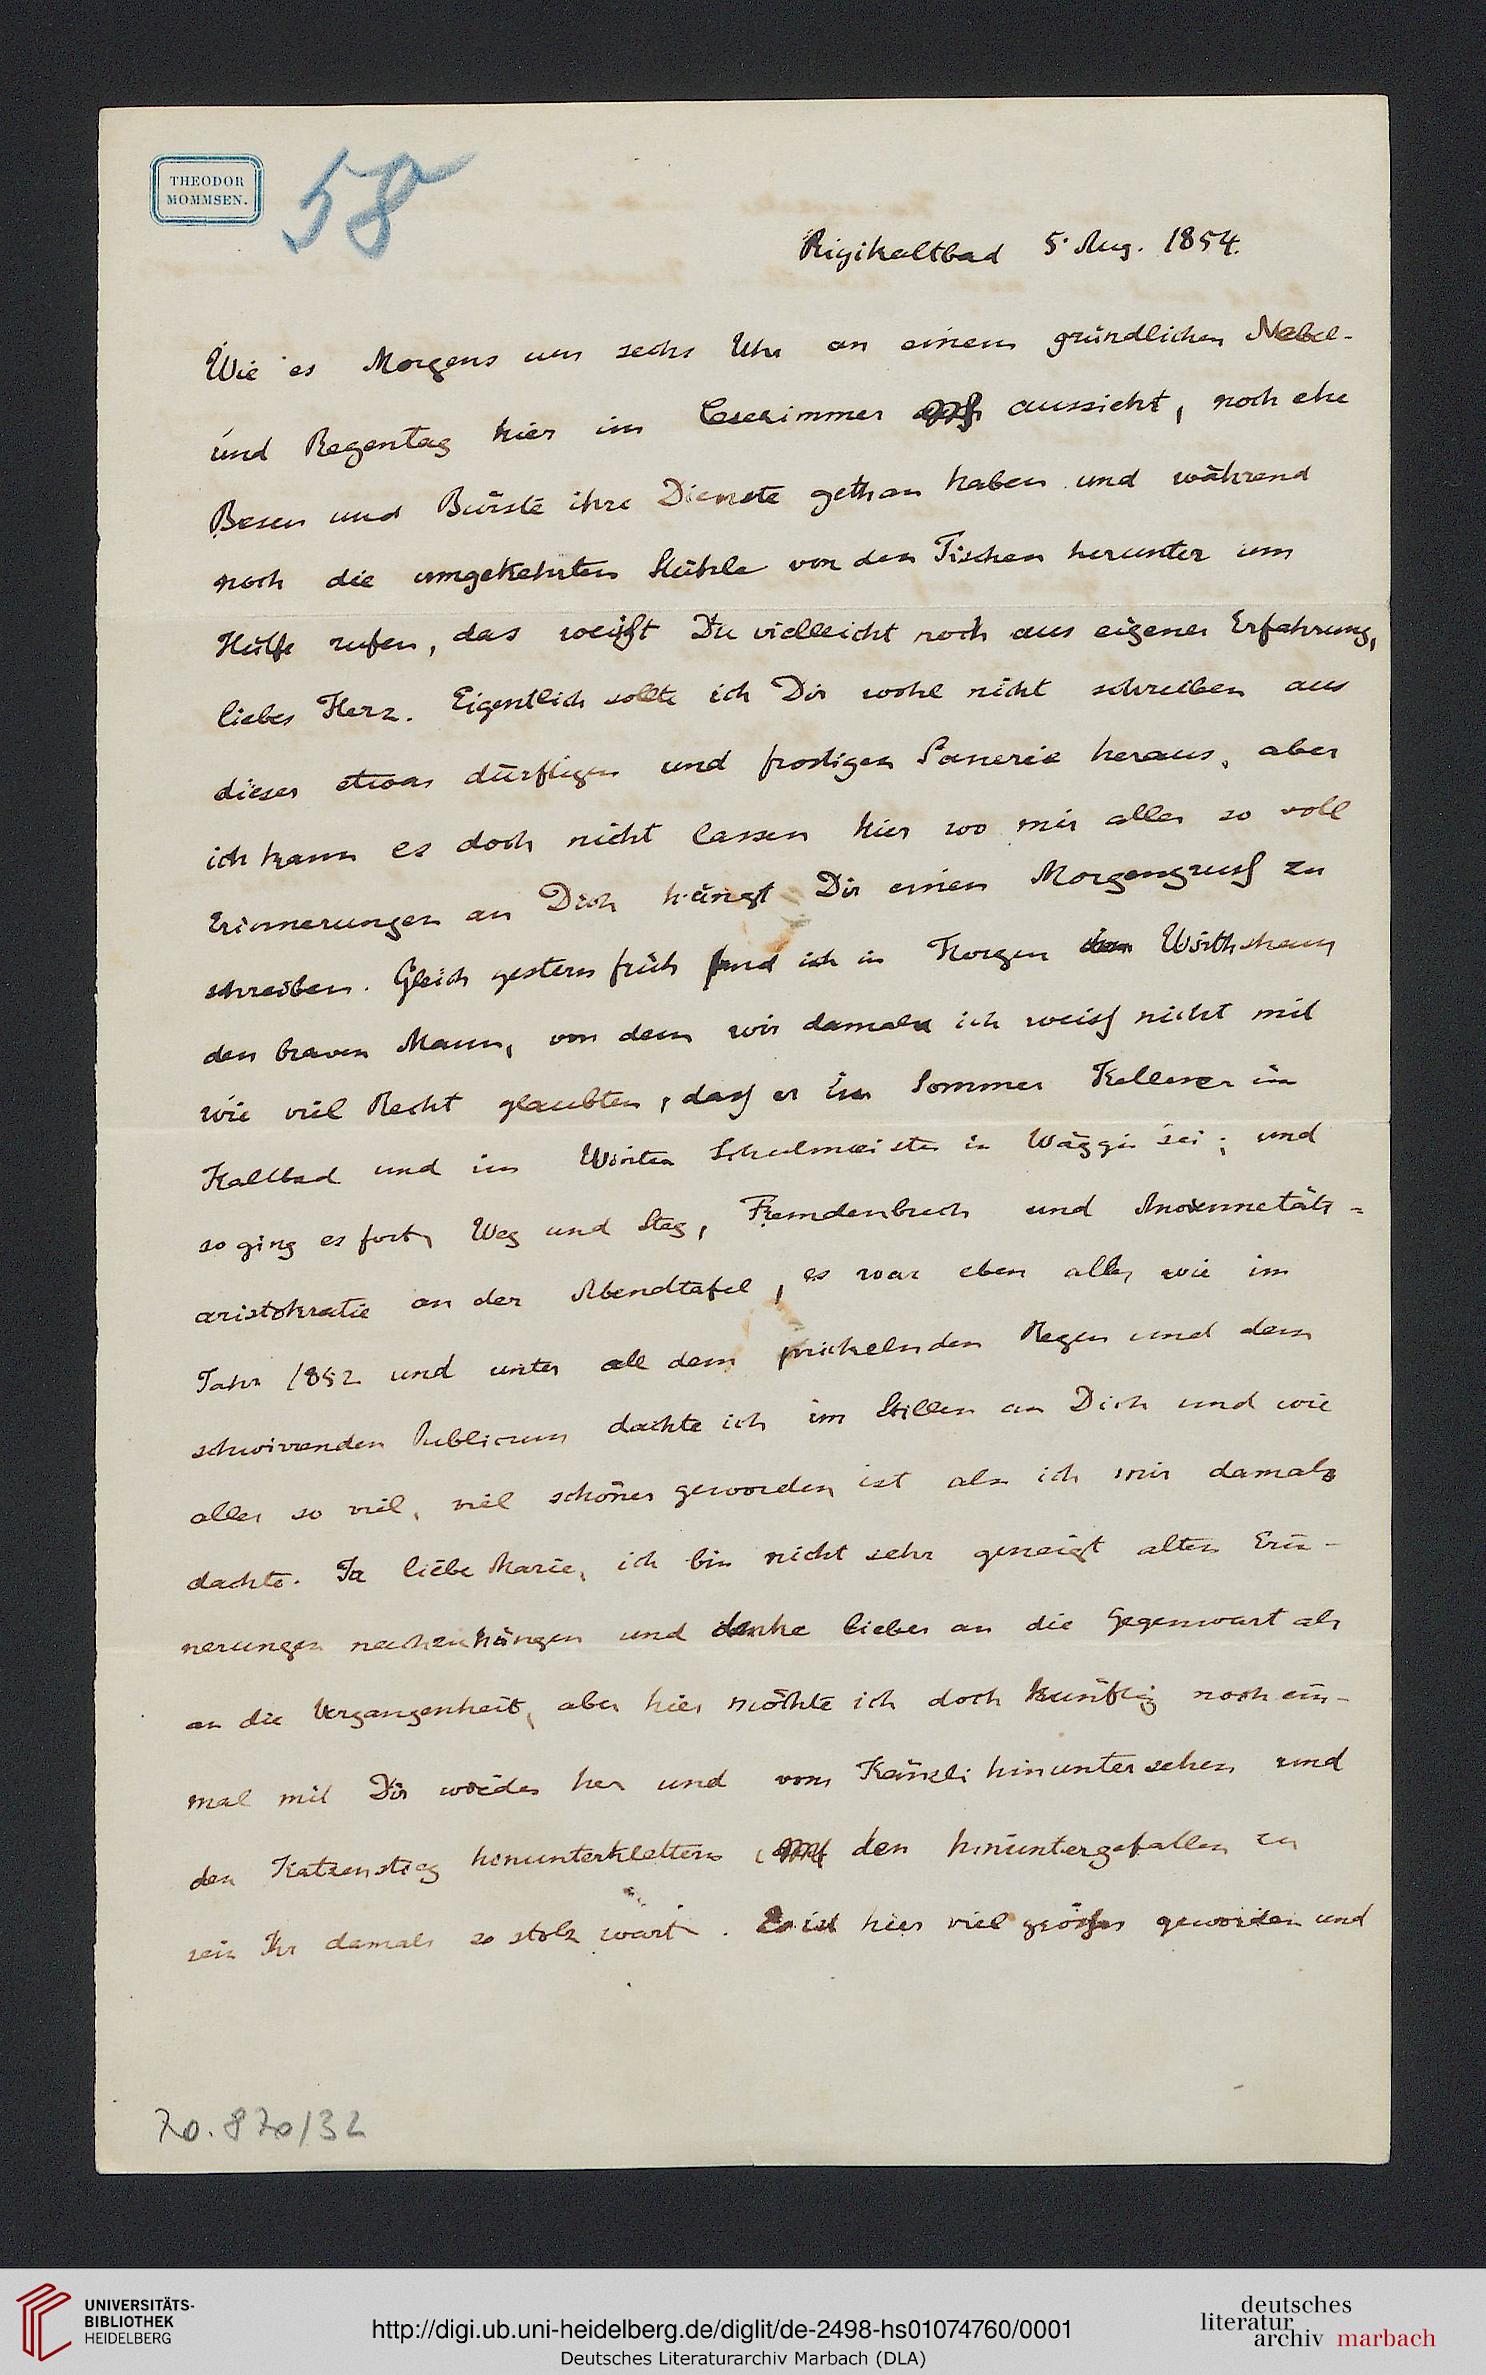 THEODOR
MOMMSEN.
58
Rigikaltbad 5. Aug. 1854.
Wie es Morgens um sechs Uhr an einem gründlichen Nebel-
und Regentag hier im Lesezimmer aussieht, noch ehe
Besen und Bürste ihre Dienste gethan haben und während
noch die umgekehrten Stühle von den Tischen herunter um
Hülfe rufen, das weißt Du vielleicht noch aus eigener Erfahrung,
liebes Herz. Eigentlich sollte ich Dir wohl nicht schreiben aus
dieser etwas dürftigen und frostigen heraus, aber
ich kann es doch nicht lassen hier wo mir alles so voll
Erinnerungen an Dich hängt Dir einen Morgengruß zu
schreiben. Gleich gestern früh fand ich in Horgen Wirthshaus
den braven Mann, von dem wir damals ich weiß nicht mit
wie viel Recht glaubten, daß er im Sommer Kellner im
Kaltbad und im Winter Schulmeister in Wäggis sei; und
so ging es fort, Weg und Steg, Fremdenbuch und
aristokratie an der Abendtafel, es war eben alles wie im
Jahr 1852 und unter all dem prickelnden Regen und dem
schwirrenden Publicum dachte ich im Stillen an Dich und wie
alles so viel, viel schöner geworden ist als ich mir damals
dachte. Ja liebe Marie, ich bin nicht sehr geneigt alten Erin-
nerungen nachzuhängen und denke lieber an die Gegenwart als
an die Vergangenheit, aber hier möchte ich doch künftig noch ein-
mal mit Dir wieder her und vom Känzli hinunter sehen und
den Katzensteig hinunterklettern, den hinuntergefallen zu
sein Ihr damals so stolz wart. Es ist hier viel größer geworden und
70.870/32
UNIVERSITÄTS-
BIBLIOTHEK
HEIDELBERG
http://digi.ub.uni-heidelberg.de/diglit/de-2498-hs01074760/0001
Deutsches Literaturarchiv Marbach (DLA)
deutsches
literatur
archiv marbach